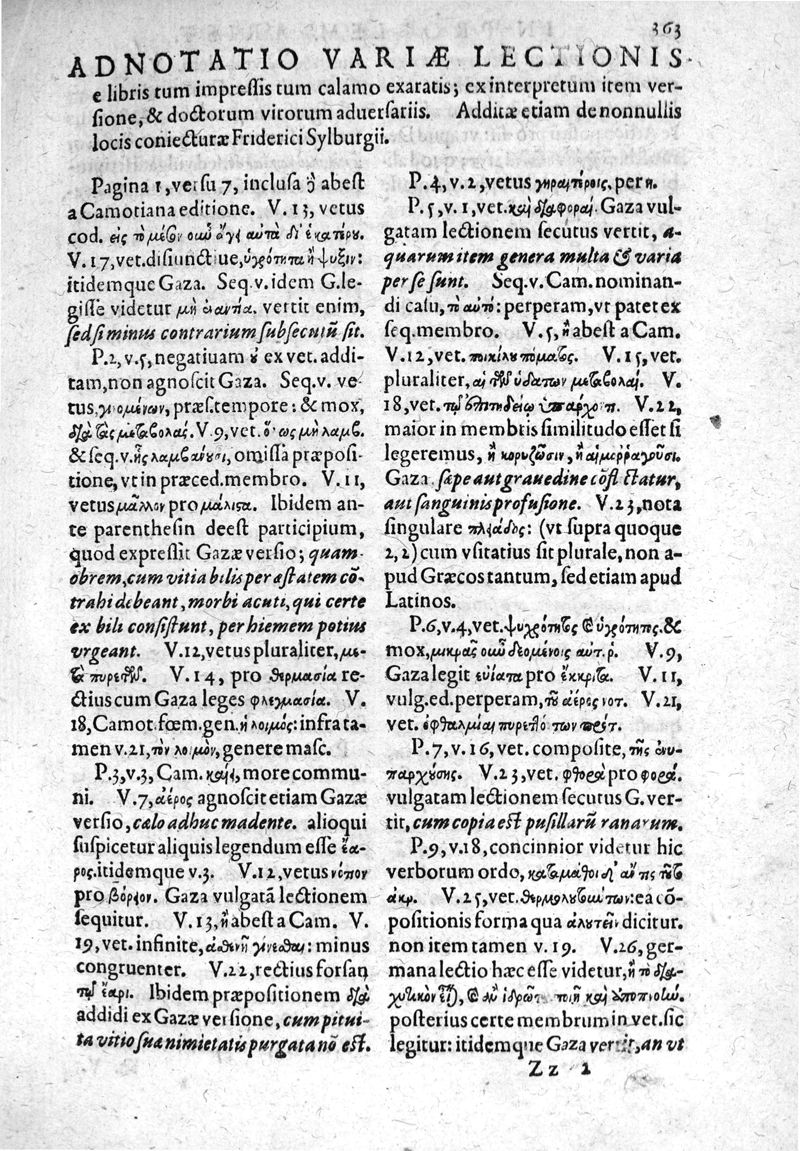 363
ADNOTATIO VARIÆ LECTIONIS
e libris tum impressis tum calamo exaratis; ex interpretum item ver-
sione, & doctorum virorum aduersariis. Additæ etiam de nonnullis
locis coniecturæ Friderici Sylburgii.
Pagina 1, versu 7, inclusa abest
a Camotiana editione. V. 13, vetus
cod. εἰς τὸ
V. 17, vet. disiunctiue, ὑγρότητα ἢ ψυξιν:
itidemque Gaza. Seq. v. idem G. le-
gisse videtur μὴ ἐναντία. vertit enim,
sed si minus contrarium subsecutū sit.
P. 2, v. 5, negatiuam ex vet. addi-
tam, non agnoscit Gaza. Seq. v. ve-
tus, γινομένων, præs. tempore: & mox,
διὰ τὰς μεταβολάς. V. 9, vet. ὅ ως μὴ λαμβ.
& seq. v. ἧς λαμβάνουσι, omissa præposi-
tione, vt in præced. membro. V. 11,
vetus μᾶλλον pro μάλιστα. Ibidem an-
te parenthesin deest participium,
quod expressit Gazæ versio; quam-
obrem, cum vitia bilis per æstatem cō-
trahi debeant, morbi acuti, qui certe
ex bili consistunt, per hiemem potius
vrgeant. V. 12, vetus pluraliter, με-
τὰ πυρετῶν. V. 14, pro θερμασία re-
ctius cum Gaza leges φλεγμασία. V.
18, Camot. fœm. gen. ἡ λοιμός: infra ta-
men v. 21, τὸν λοιμὸν, genere masc.
P. 3, v. 3, Cam. more commu-
ni. V. 7, ἀέρος agnoscit etiam Gazæ
versio, cælo adhuc madente. alioqui
suspicetur aliquis legendum esse ἔα-
ρος. itidemque v. 3. V. 12, vetus νότιον
pro βόρειον. Gaza vulgatā lectionem
sequitur. V. 13, ἢ abest a Cam. V.
19, vet. infinite, ἀσθενῆ γίνεσθαι: minus
congruenter. V. 22, rectius forsan
τῷ ἔαρι. Ibidem præpositionem διὰ
addidi ex Gazæ versione, cum pitui-
ta vitio sua nimietatis purgata nō est.
P. 4, v. 2, vetus per η.
P. 5, v. 1, vet. καὶ διαφοραί. Gaza vul-
gatam lectionem secutus vertit, a-
quarum item genera multa & varia
per se sunt. Seq. v. Cam. nominan-
di casu, τὸ αὐτό: perperam, vt patet ex
seq. membro. V. 5, ἢ abest a Cam.
V. 12, vet. ποικίλου πόματος. V. 15, vet.
pluraliter, αἱ τῶν ὑδάτων μεταβολαί. V.
18, vet. τῷ ὑπάρχον V. 22,
maior in membris similitudo esset si
legeremus, ἢ κορυζῶσιν, ἢ αἱμορραγοῦσι.
Gaza. sæpe aut grauedine cōst ctatur,
aut sanguinis profusione. V. 23, nota
singulare πλειάδος: (vt supra quoque
2, 2) cum vsitatius sit plurale, non a-
pud Græcos tantum, sed etiam apud
Latinos.
P. 6, v. 4, vet. ψυχρότητος & ὑγρότητος. &
mox, μικρᾶς οὖν δεομένοις αὐτ. ρ. V. 9,
Gaza legit εὐίατα pro ἔκκριτα. V. 11,
vulg. ed. perperam, τοῦ ἀέρος νοτ. V. 21,
vet. ὀφθαλμίαι
P. 7, v. 16, vet. composite, τῆς ἐνυ-
παρχούσης. V. 23, vet. φθορὰ pro φορά.
vulgatam lectionem secutus G. ver-
tit, cum copia est pusillarū ranarum.
P. 9, v. 18, concinnior videtur hic
verborum ordo, καταμάθοι δ' ἄν τις
ἀκρ. V. 25, vet. ea cō-
positionis forma qua dicitur.
non item tamen v. 19. V. 26, ger-
mana lectio hæc esse videtur, ἢ τὸ δια-
χυτικὸν
posterius certe membrum in vet. sic
legitur: itidemque Gaza vertit, an vt
Zz 2